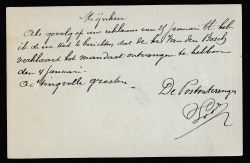 Mijnheer
Als gevolg op uw reklaam van 28 Januari ll. heb
ik de eer Ued te berichten dat de hr. Van den Bosch
verklaart het mandaat ontvangen te hebben
den 4 Januari.
Achtingsvolle groeten
De Postontvanger